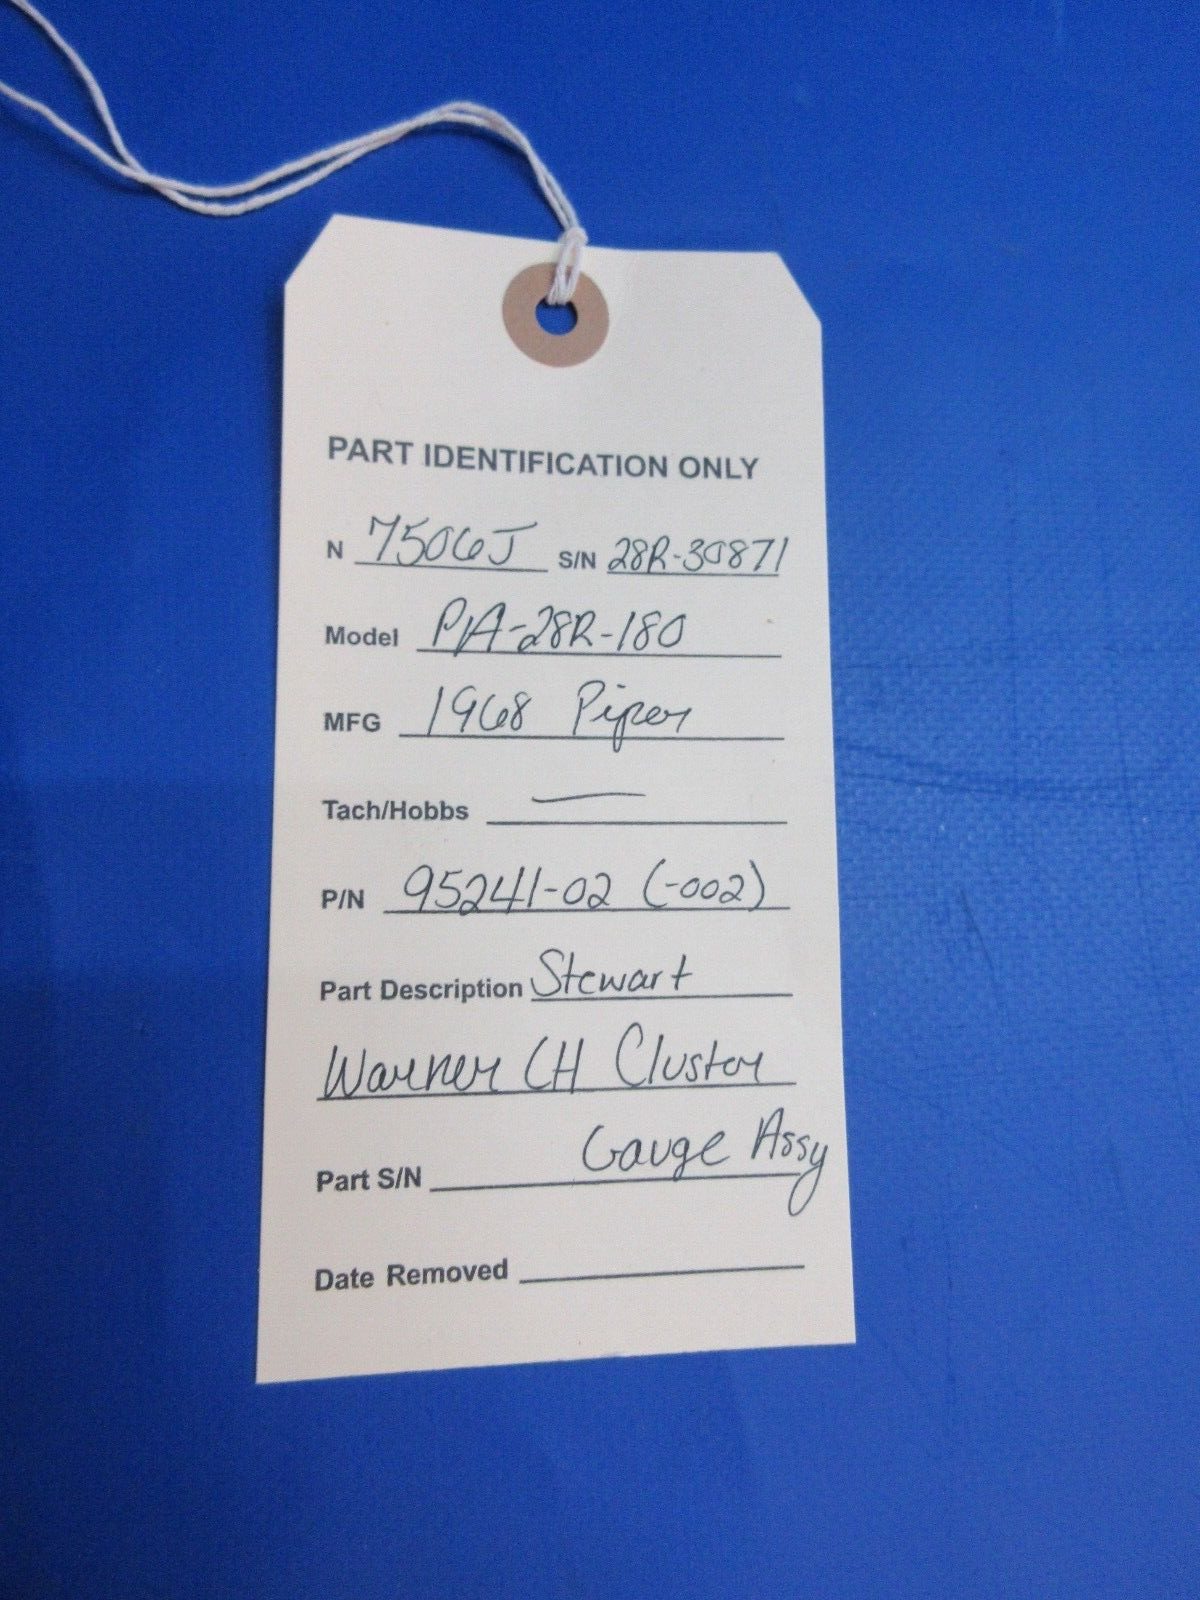 PART IDENTIFICATION ONLY
N 7506J S/N 28R-30871
Model PA-28R-180
MFG 1968 Piper
Tach/Hobbs —
P/N 95241-02 (-002)
Part Description Stewart
Warner CH Cluster
Gauge Assy
Part S/N
Date Removed